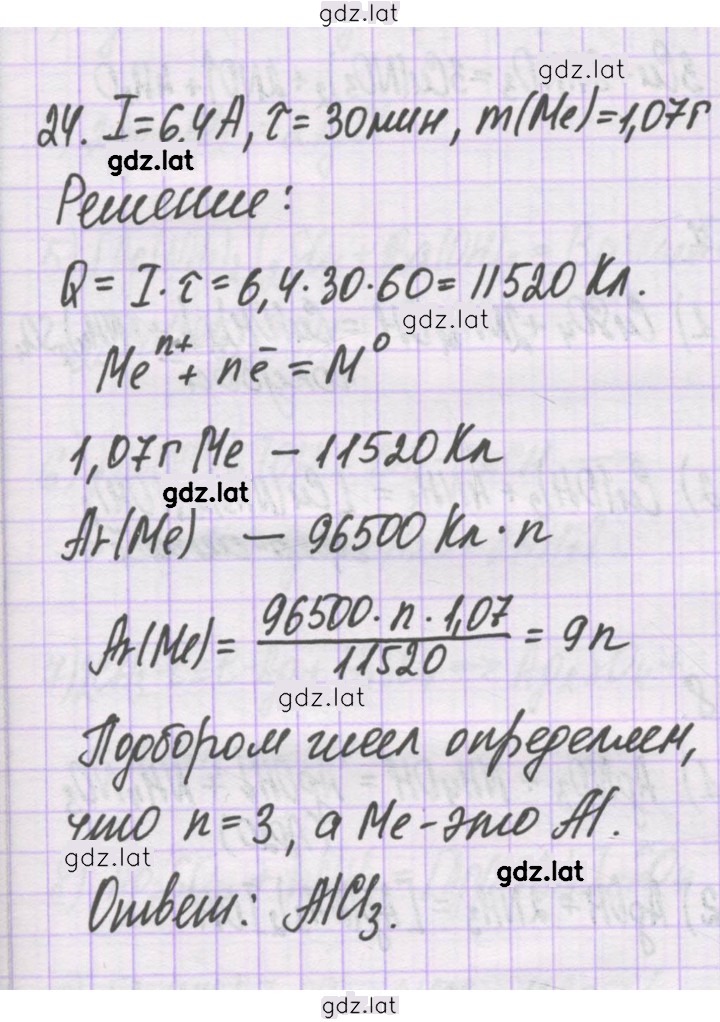 gdz.lat
gdz.lat
24. I=6.4А, τ=30мин, m(Me)=1,07г
gdz.lat
Решение:
Q= I·τ=6,4·30·60=11520 Кл.
gdz.lat
Meⁿ⁺+ nē=M⁰
1,07г Me – 11520 Кл
gdz.lat
Ar(Me) — 96500 Кл·n
Ar(Me)= 96500·n·1,07/11520 = 9n
gdz.lat
Подбором чисел определяем,
что n=3, а Me-это Al.
gdz.lat
gdz.lat
Ответ: AlCl₃.
gdz.lat